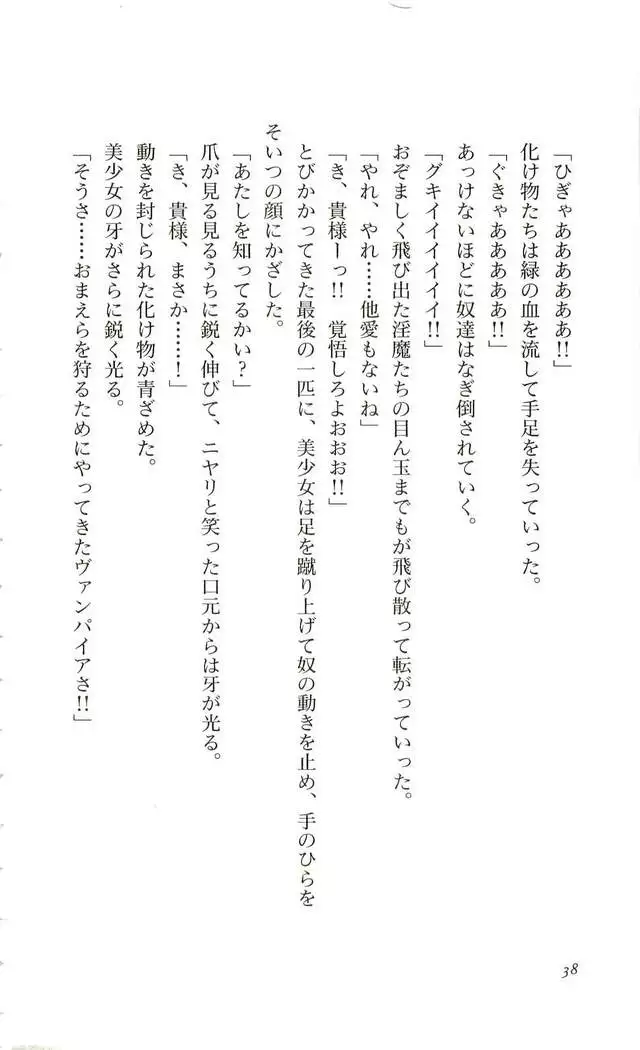 「ひぎゃああああああ!!」
化け物たちは緑の血を流して手足を失っていった。
「ぐきゃあああああ!!」
あっけないほどに奴達はなぎ倒されていく。
「グキイイイイイイイ!!」
おぞましく飛び出た淫魔たちの目ん玉までもが飛び散って転がっていった。
「やれ、やれ……他愛もないね」
「き、貴様ーっ!! 覚悟しろよおおお!!」
とびかかってきた最後の一匹に、美少女は足を蹴り上げて奴の動きを止め、手のひらを
そいつの顔にかざした。
「あたしを知ってるかい?」
爪が見る見るうちに鋭く伸びて、ニヤリと笑った口元からは牙が光る。
「き、貴様、まさか……!」
動きを封じられた化け物が青ざめた。
美少女の牙がさらに鋭く光る。
「そうさ……おまえらを狩るためにやってきたヴァンパイアさ!!」
38